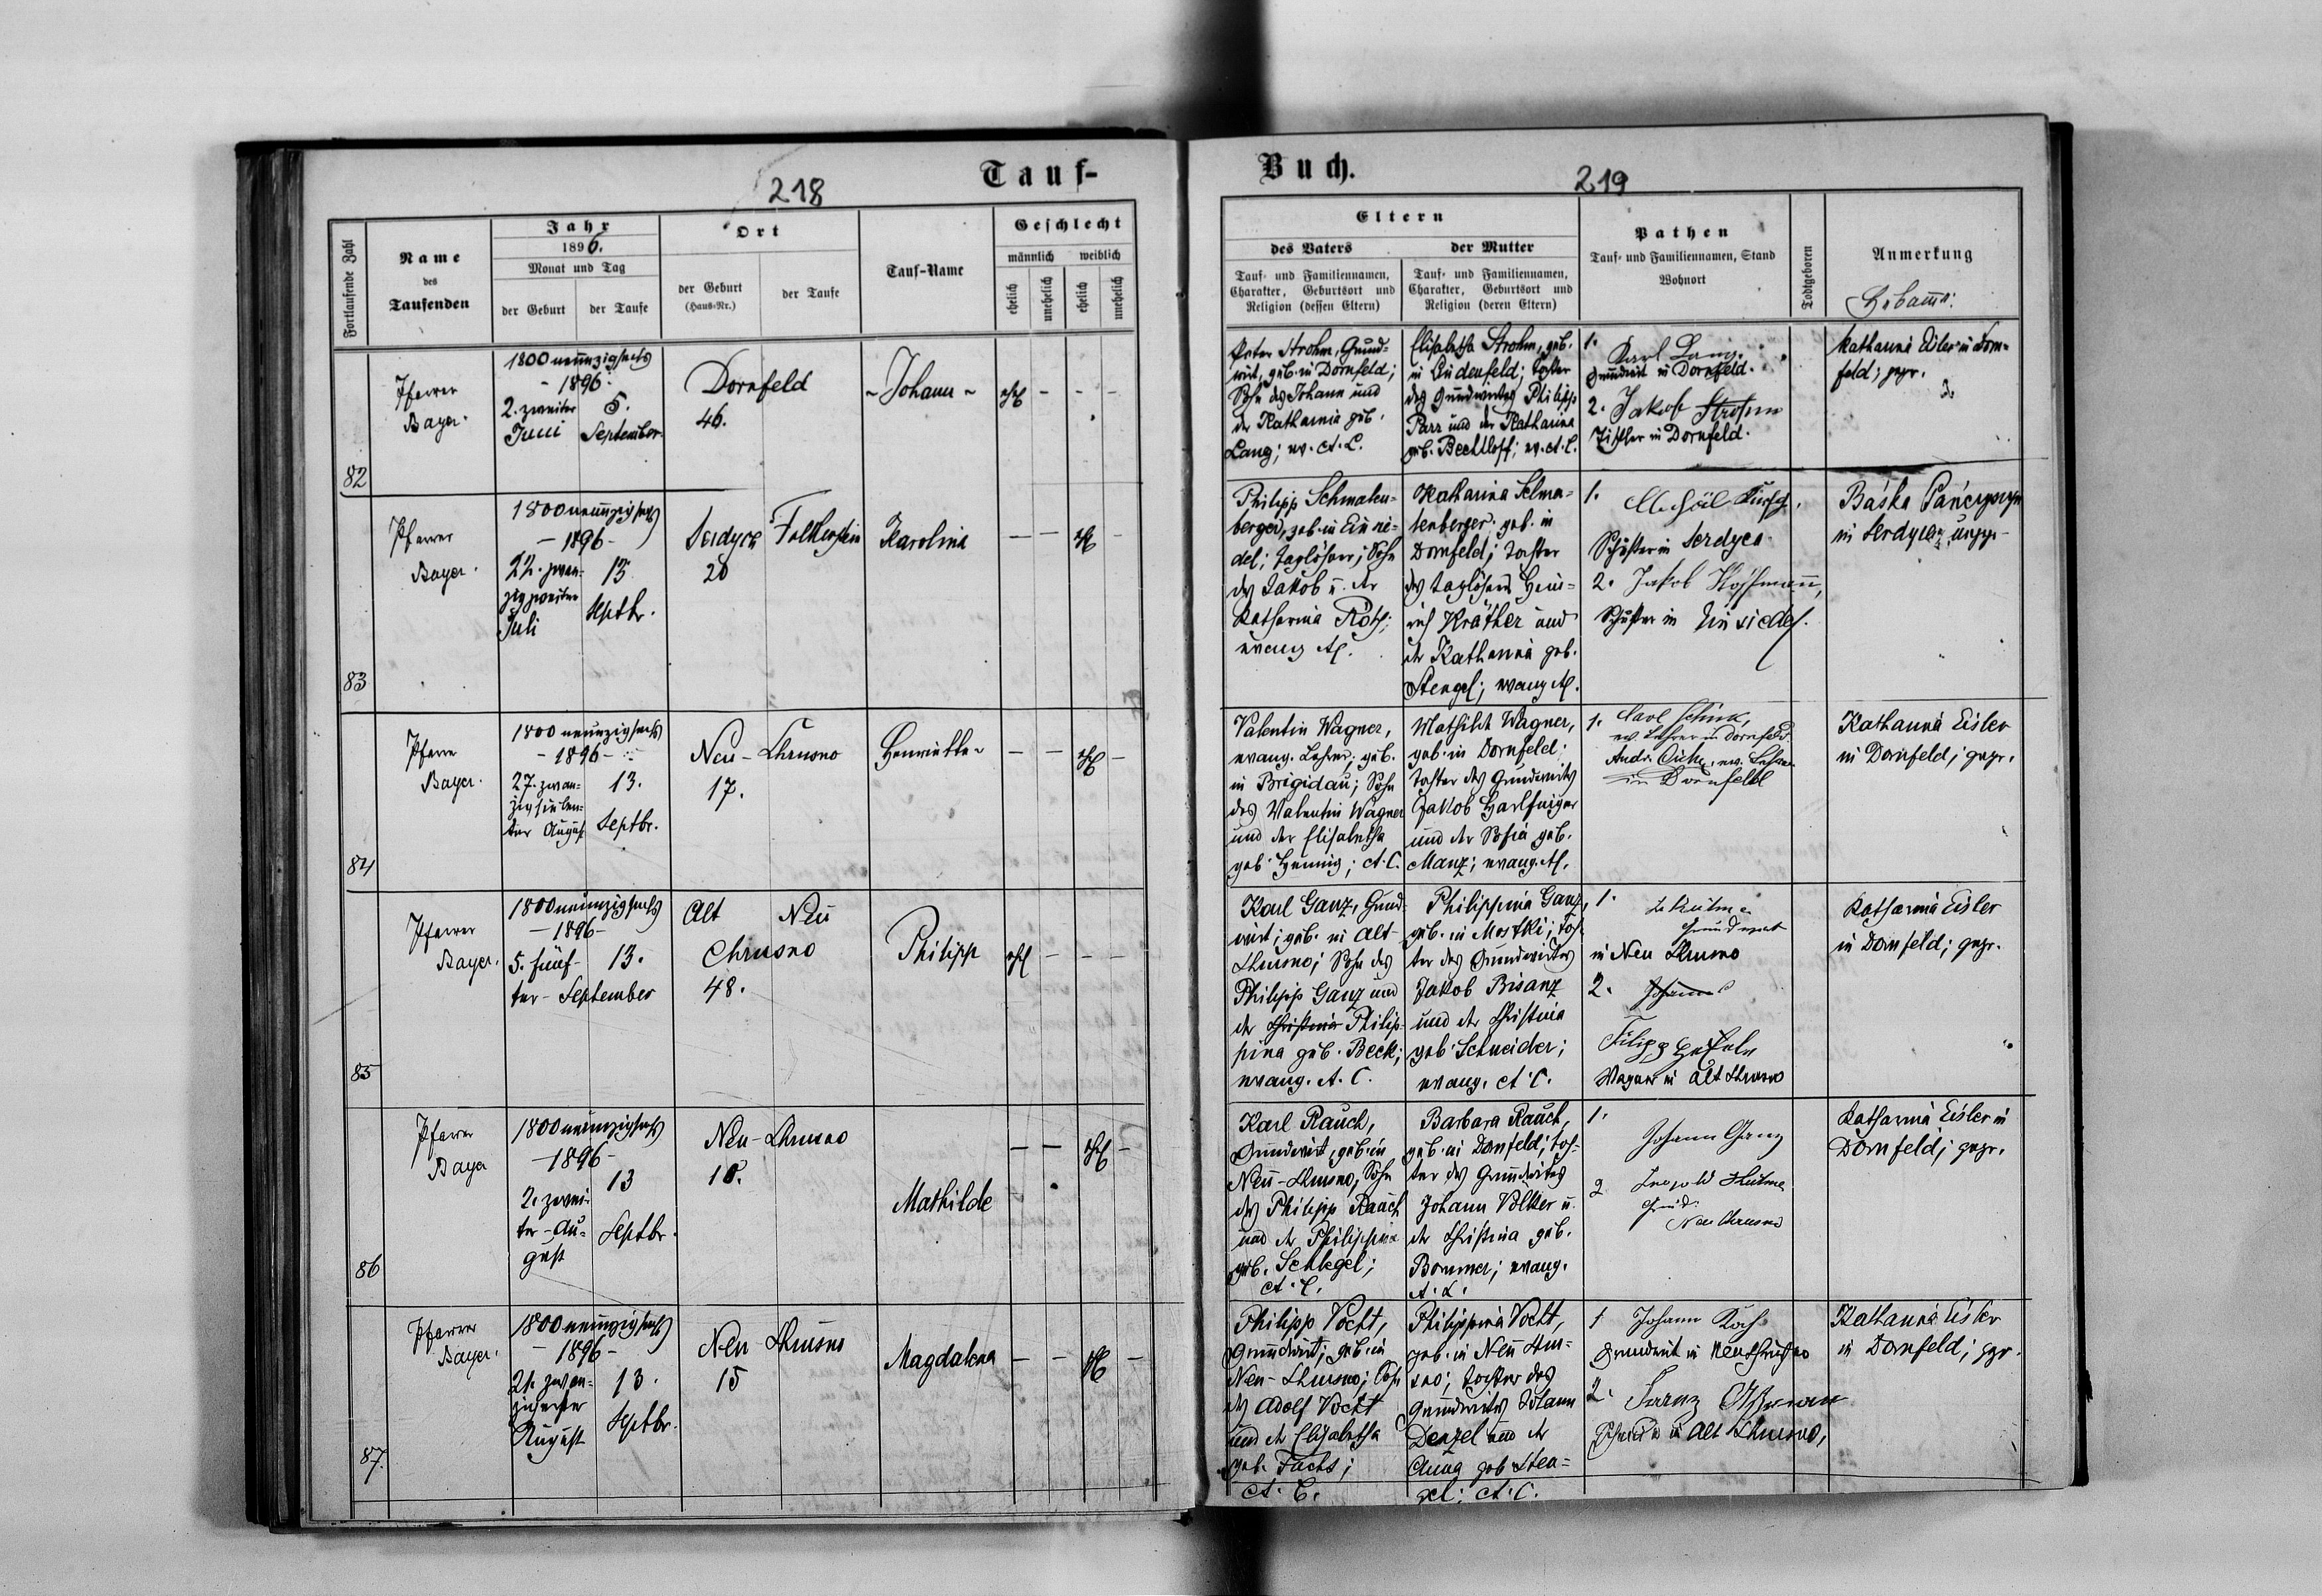 Tauf-
218
Fortlaufende Zahl
Name
des
Taufenden
Jahr
1896.
Monat und Tag
der Geburt
der Taufe
Ort
der Geburt
(Haus-Nr.)
der Taufe
Tauf-Name
Geschlecht
männlich
weiblich
ehelich
unehelich
ehelich
unehelich
82
Pfarrer
Bayer.
1800 neunzigsechs
- 1896 -
2. zweiter
Juni
5.
September
Dornfeld
46.
- Johann -
ehl - - -
83
Pfarrer
Bayer.
1800 neunzigsechs
- 1896 -
22. zwan-
zigzweiter
Juli
13
Septbr.
Serdyca
20
Falkenstein
Karolina
- - ehl -
84
Pfarrer
Bayer.
1800 neunzigsechs
- 1896 -
27. zwan-
zigsieben-
ter August
13.
Septbr.
Neu-Chrusno
17.
Henriette
- - ehl -
85
Pfarrer
Bayer.
1800 neunzigsechs
- 1896 -
5. fünf-
ter - September
13.
Alt Neu
Chrusno
48.
Philipp
ehl - - -
86
Pfarrer
Bayer
1800 neunzigsechs
- 1896 -
2. zwei-
ter - Au-
gust
13
Septbr.
Neu-Chrusno
18.
Mathilde
- - ehl -
87.
Pfarrer
Bayer.
1800 neunzigsechs
- 1896 -
21. zwan-
zigerster
August
13.
Septbr.
Neu-Chrusno
15
Magdalena
- - ehl -
Buch.
219
Eltern
des Vaters
der Mutter
Tauf- und Familiennamen,
Charakter, Geburtsort und
Religion (dessen Eltern)
Tauf- und Familiennamen,
Charakter, Geburtsort und
Religion (deren Eltern)
Pathen
Tauf- und Familiennamen, Stand
Wohnort
Todtgeboren
Anmerkung
Hebamme:
Peter Strohm, Grund-
wirt, geb. in Dornfeld;
Sohn des Johann und
der Katharina geb.
Lang; ev. A. C.
Elisabetha Strohm, geb.
in Lindenfeld; Tochter
des Grundwirtes Philipp
Parr und der Katharina
geb. Bechtloff; ev. A. C.
1.
Karl Lang
Grundwirt in Dornfeld.
2. Jakob Strohm
Tischler in Dornfeld.
Katharina Eisler in Dorn-
feld; gepr.
Philipp Schmalen-
berger, geb. in Einsie-
del; Taglöhner; Sohn
des Jakob u. der
Katharina Roth;
evang. A.C.
Katharina Schma-
lenberger geb. in
Dornfeld; Tochter
des Taglöhners Hein-
rich Kräther und
der Katharina geb.
Stengel; evang. A.C.
1.
Schuster in Serdyca
2. Jakob Hoffmann,
Schuster in Einsiedel.
Báska
in Serdyca; ungepr.
Valentin Wagner,
evang. Lehrer; geb.
in Brigidau; Sohn
des Valentin Wagner
und der Elisabetha
geb. Hennig; A. C.
Mathilde Wagner,
geb. in Dornfeld;
Tochter des Grundwirtes
Jakob Harlfinger
und der Sofia geb.
Manz; evang. A.C.
1. Karl Schick,
ev. Lehrer in Dornfeld
ev. Lehrer
in Dornfeld
Katharina Eisler
in Dornfeld; gepr.
Karl Ganz, Grund-
wirt; geb. in Alt-
Chrusno; Sohn des
Philipp Ganz und
der Christina Philip-
pina geb. Beck;
evang. A. C.
Philippina Ganz,
geb. in Mostki; Toch-
ter des Grundwirtes
Jakob Bisanz
und der Christina
geb. Schneider;
evang. A. C.
1.
Grundwirt
in Neu Chrusno
2. Johann
Filipp
Wagner in Alt Chrusno
Katharina Eisler
in Dornfeld; gepr.
Karl Rauch,
Grundwirt, geb. in
Neu-Chrusno, Sohn
des Philipp Rauch
und der Philippina
geb. Schlegel;
A. C.
Barbara Rauch,
geb. in Dornfeld; Toch-
ter des Grundwirtes
Johann Volker u.
der Christina geb.
Bommer; evang.
A. C.
1.
Johann Ganz
2
Neu Chrusno
Katharina Eisler in
Dornfeld; gepr.
Philipp Vocht,
Grundwirt; geb. in
Neu-Chrusno; Sohn
des Adolf Vocht
und der Elisabetha
geb. Fuchs;
A. C.
Philippina Vocht,
geb. in Neu Chru-
sno; Tochter des
Grundwirtes Johann
Denzel und der
Anna geb. Sten-
gel; A. C.
1 Johann Koch
Grundwirt in Neu Chrusno
2. Franz
Schneider in Alt Chrusno,
Katharina Eisler
in Dornfeld; gepr.